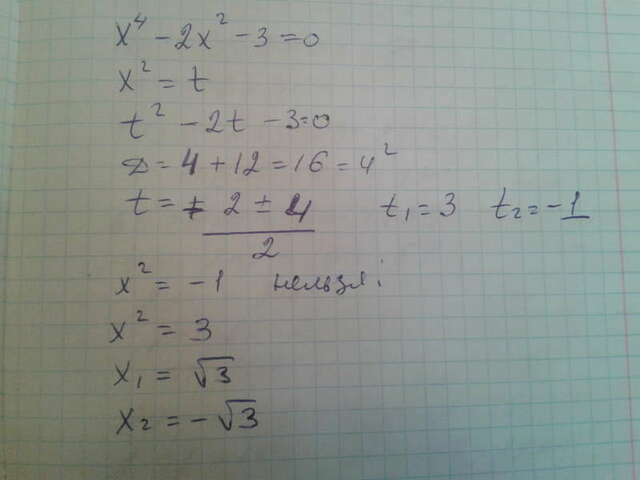 x⁴ - 2x² - 3 = 0
x² = t
t² - 2t - 3 = 0
D = 4 + 12 = 16 = 4²
t = + 2 ± 4 / 2 t₁ = 3 t₂ = -1
x² = -1 нельзя;
x² = 3
x₁ = √3
x₂ = -√3